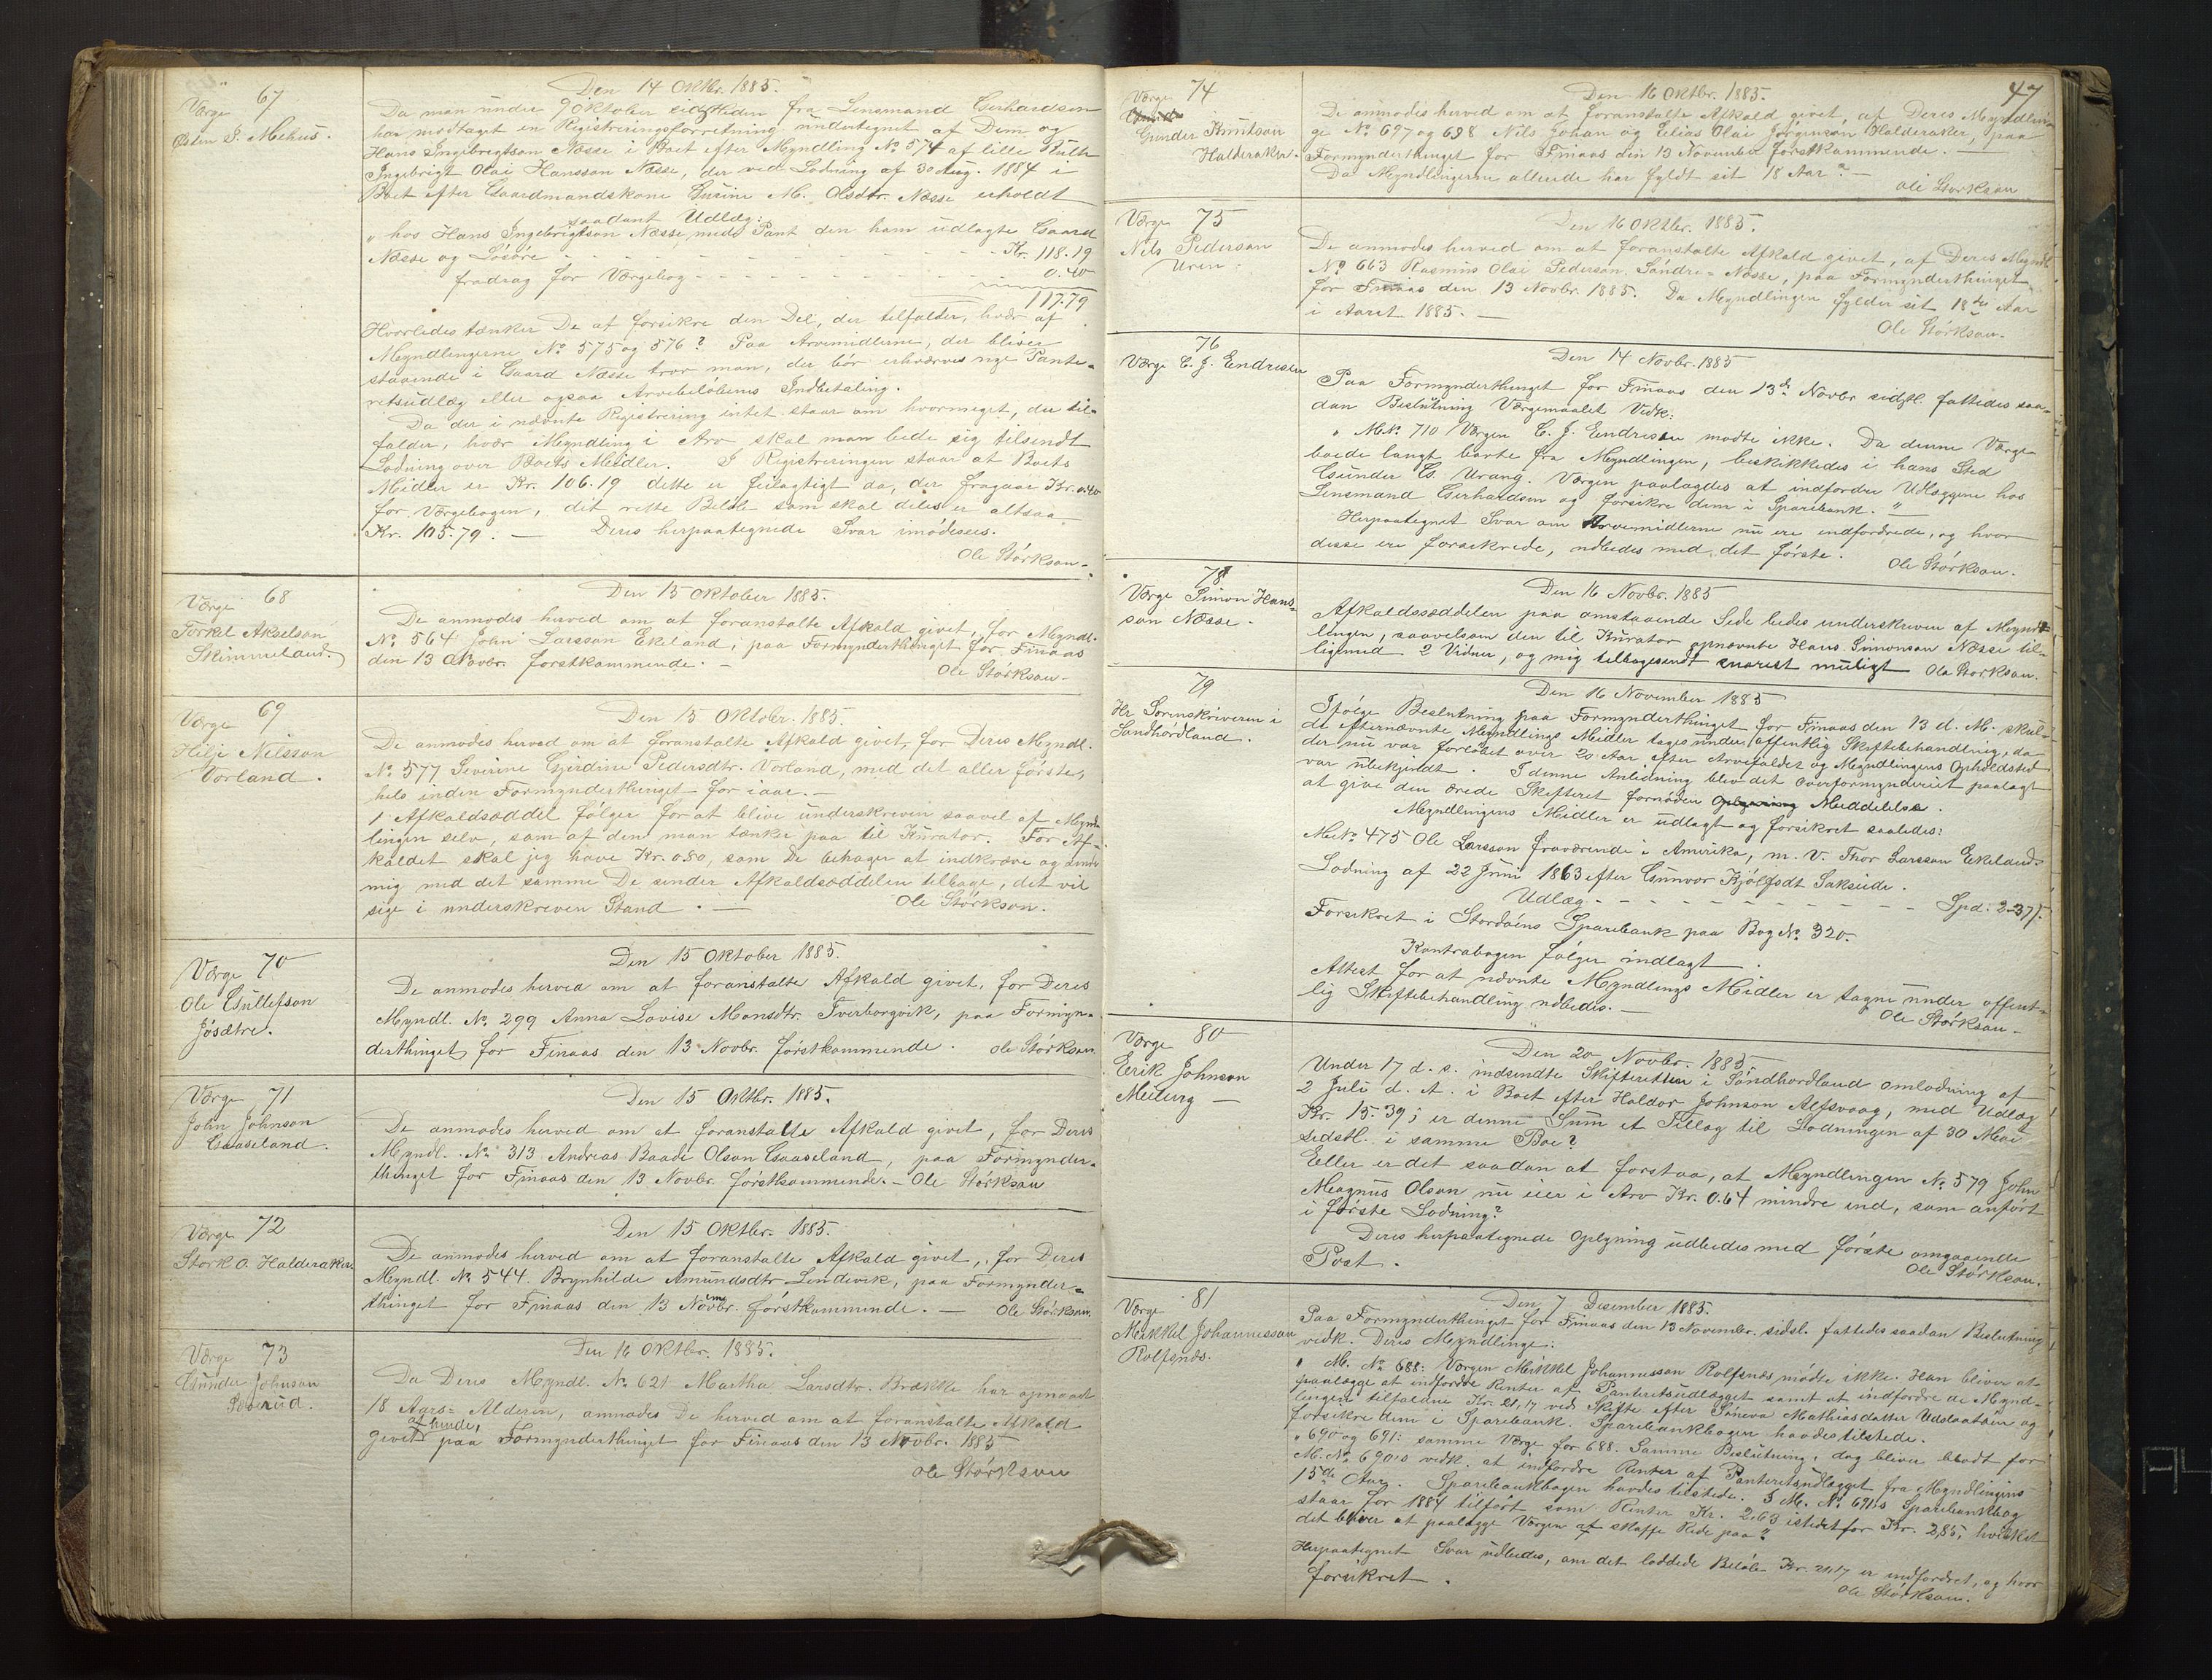 67
Værge
Østen I. Mehus.
Den 14 Oktbr. 1885.
Da man under 9 Oktober sidstleden fra Lensmand Gerhardsen
har modtaget en Registreringsforretning undertegnet af Dem og
Hans Ingebrigtson Næsse i Boet efter Myndling No 574 af lille
Ingebrigt Olai Hansson Næsse, der ved Lodning af 30 Aug. 1884 i
Boet efter Gaardmandskone Gurine M. Olsdtr. Næsse erholdt
saadant Udlæg:
" hos Hans Ingebrigtson Næsse, med Pant den ham udlagte Gaard
Næsse og Løsøre - - - Kr. 118.19
fradrag for Værgebog - - - 0.40
117.79
Hvorledes tænker De at forsikre den Del, der tilfalder, hver af
Myndlingerne No 575 og 576? Paa Arvemidlerne, der bliver
staaende i Gaard Næsse tror man, der bør erhverves nye Pante-
retsudlæg eller ogsaa Arvebeløbenes Indbetaling.
Da der i nævnte Registrering intet staar om hvormeget, der til-
falder, hver Myndling i Arv skal man bede sig tilsendt
Lodning over Boets Midler. I Registreringen staar at Boets
Midler er Kr. 106.19 dette er feilagtigt da, der fragaar Kr. 0.40
for Værgebogen, det rette Beløb som skal deles er altsaa
Kr. 105.79. — Deres herpaategnede Svar imødesees.
Ole Størkson.
68
Værge
Torkel Akselson
Skimmeland.
Den 15 Oktober 1885.
De anmodes herved om at foranstalte Afkald givet, for Myndl.
No 564 John Larsson Ekeland, paa Formynderthinget for Finaas
den 13 Novbr. førstkommende. —
Ole Størkson.
69
Værge
Helje Nilsson
Vorland.
Den 15 Oktober. 1885.
De anmodes herved om at foranstalte Afkald givet, for Deres Myndl.
No 577 Severine Gjerdine Pedersdtr. Vorland, med det aller første,
hels inden Formynderthinget for iaar. —
1 Afkaldsseddel følger for at blive underskreven saavel af Mynd-
lingen selv, som af den man tænker paa til Kurator. For Af-
kaldet skal jeg have Kr. 0.80, som De behager at indkræve og sende
mig med det samme De sender Afkaldseddelen tilbage, det vil
sige i underskreven Stand. —
Ole Størkson.
70
Værge
Ole Gullefson
Jøsætre.
Den 15 Oktober 1885.
De anmodes herved om at foranstalte Afkald givet, for Deres
Myndl. No 299 Anna Lovise Monsdtr. Tverborgvik, paa Formyn-
derthinget for Finaas den 13 Novbr. førstkommende. Ole Størkson
71
Værge
John Johnson
Gaaseland.
Den 15 Oktbr. 1885.
De anmodes herved om at foranstalte Afkald givet, for Deres
Myndl. No 313 Andreas Baade Olson Gaaseland, paa Formynder-
thinget for Finaas den 13 Novbr. førstkommende. — Ole Størkson
72
Værge
Størk O. Halderaker
Den 15 Oktbr. 1885.
De anmodes herved om at foranstalte Afkald givet, for Deres
Myndl. No 544. Brynhilde Amundsdtr Lendevik, paa Formynder-
thinget for Finaas den 13 Novbr. førstkommende. — Ole Størkson.
73
Værge
Gunder Johnson
Den 16 Oktbr. 1885.
Da Deres Myndl. No 621 Martha Larsdtr. Brække har opnaaet
18 Aars-Alderen, anmodes De herved om at foranstalte Afkald
af hende,
givet paa Formynderthinget for Finaas den 13 Novbr. 1885
Ole Størkson
47
74
Værge
Gunder Knutson
Halderaker.
Den 16 Oktbr. 1885.
De anmodes herved om at foranstalte Afkald givet, af Deres Myndlin-
ge No 697 og 698 Nils Johan og Elias Olai Jørgenson Halderaker, paa
Formynderthinget for Finaas den 13 November førstkommende. —
Da Myndlingerne allerede har fyldt sit 18 Aar? —
Ole Størkson
75
Værge
Nils Pederson
Uren.
Den 16 Oktbr. 1885.
De anmodes herved om at foranstalte Afkald givet, af Deres Myndl.
No 663 Rasmus Olai Pederson Søndre-Næsse, paa Formynderthinget
for Finaas den 13 Novbr. 1885. Da Myndlingen fylder sit 18de Aar
i Aaret 1885. —
Ole Størkson.
76
Værge E. J. Endresen
Den 14 Novbr. 1885
Paa Formynderthinget for Finaas den 13d Novbr sidstl. fattedes saa-
dan Beslutning Værgemaalet Vedk:
" M No. 710 Værgen E. J. Endresen mødte ikke. Da denne Værge
boede langt borte fra Myndlingen, beskikkedes i hans Sted
Gunder Gs. Urang. Værgen paalagdes at indfordre Udlæggene hos
Lensmand Gerhardsen og forsikre dem i Sparebank. " —
Herpaategnet Svar om Arvemidlerne nu ere indfordrede, og hvor
disse ere forsikrede, udbedes med det første.
Ole Størkson.
78
Værge Simon Hans-
son Næsse.
Den 16 Novbr. 1885
Afkaldsseddelen paa omstaaende Side bedes underskreven af Mynd-
lingen, saavelsom den til Kurator opnævnte Hans Simonson Næsse til-
ligemed 2 Vidner, og mig tilbagesendt snarest muligt Ole Størkson.
79
Hr Sorenskriveren i
Søndhordland.
Den 16 November 1885
Ifølge Beslutning paa Formynderthinget for Finaas den 13 d. M. skul-
de efternævnte Myndlings Midler tages under offentlig Skiftebehandling, da
der nu var forløbet over 20 Aar, efter Arvefaldet og Myndlingens Opholdsted
var ubekjendt. I denne Anledning blev det Overformynderiet paalagt
at give den ærede Skifteret fornøden Meddelelse.
Myndlingens Midler er udlagt og forsikret saaledes:
M No 475 Ole Larsson fraværende i Amerika, m. V. Thor Larsson Ekeland.
Lodning af 22 Juni 1863 efter Gunvor Kjølfsdt Saksede.
Udlæg - - - Spd. 2-37 ſ.
Forsikret i Stordøens Sparebank paa Bog No 320.
Kontrabogen følger indlagt.
Attest for at nævnte Myndlings Midler er tagne under offent-
lig Skiftebehandling udbedes. —
Ole Størkson.
80
Værge
Erik Johnson
Meling —
Den 20 Novbr. 1885.
Under 17 d. s. indsendte Skifteretten i Søndhordland omlodning af
2 Juli d. A. i Boet efter Haldor Johnson Alfsvaag, med Udlæg
Kr. 15.39; er denne Sum et Tillæg til Lodningen af 30 Mai
sidstl. i samme Boe?
Eller er det saadan at forstaa, at Myndlingen No 579 John
Magnus Olson nu eier i Arv Kr. 0.64 mindre end, som anført
i første Lodning?
Deres herpaategnede Oplysning udbedes med første omgaaende
Post.
Ole Størkson.
81
Værge
Mikkel Johannesson
Rolfsnes.
Den 7 Desember 1885.
Paa Formynderthinget for Finaas den 13 November sidstl. fattedes saadan Beslutning
vedk. Deres Myndlinge:
" M. No 688: Værgen Mikkel Johannesson Rolfsnes mødte ikke. Han bliver at
paalægge at indfordre Renter af Panteretsudlægget samt at indfordre de Mynd-
lingen tilfaldne Kr. 21,17 ved Skifte efter Søneva Mathiasdatter Udslaatten og
forsikre dem i Sparebank. Sparebankbogen havdes tilstede.
" 690 og 691: samme Værge for 688. Samme Beslutning, dog bliver blodt for
M. No 690's vedk. at indfordre Renter af Panteretsudlægget fra Myndlingens
15de Aar. Sparebankbogen havdes tilstede. I M. No 691's Sparebankbog
staar for 1884 tilført som Renter Kr. 2,63 istedetfor Kr. 2,85, hvilket
det bliver at paalægge Værgen at skaffe Rede paa."
Herpaategnet Svar udbedes, om det loddede Beløb Kr. 21,17 er indfordret, og hvor
forsikret.
Ole Størkson.